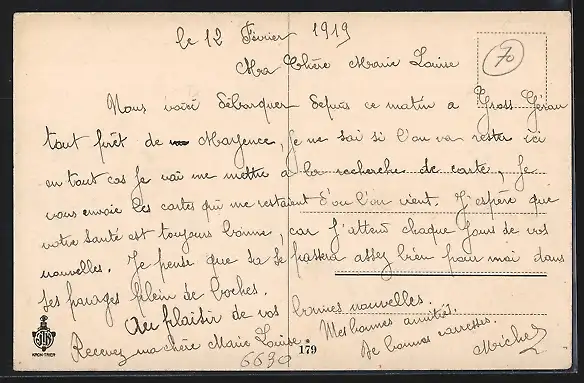 le 12 Février 1919
70
Ma Chère Marie Louise
Nous voici débarquer depuis ce matin a Gross Gérau
tout prêt de Mayence, je ne sai si l'on va rester ici
en tout cas je vai me mettre a la recherche de carte, Je
vous envoie les cartes qu'il me restaient d'ou l'on vient. J'espère que
votre santé est toujours bonne, car j'attend chaque jours de vos
nouvelles. Je pense que sa se passera assez bien pour moi dans
ses parages plein de boches.
Au plaisir de vos bonnes nouvelles.
Recevez ma chère Marie Louise. Mes bonnes amitiés.
De bonnes caresses.
Michel
6690
179
KRON-TRIER